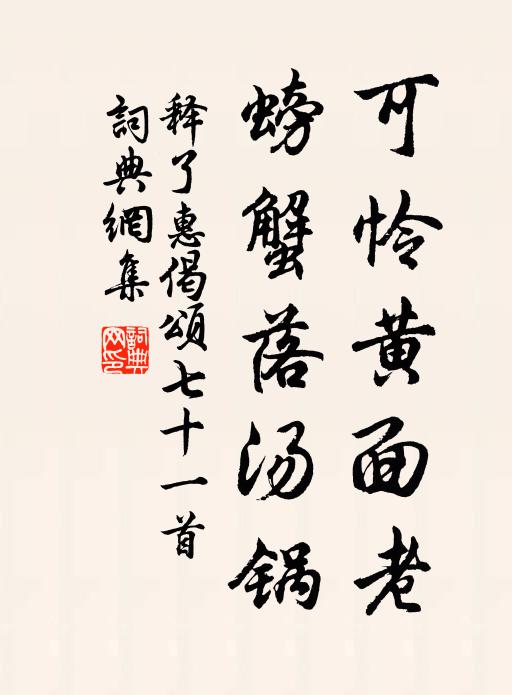 可怜黄面老
螃蟹落汤锅
释了惠偈颂七十一首
詞典網集
詞典網印